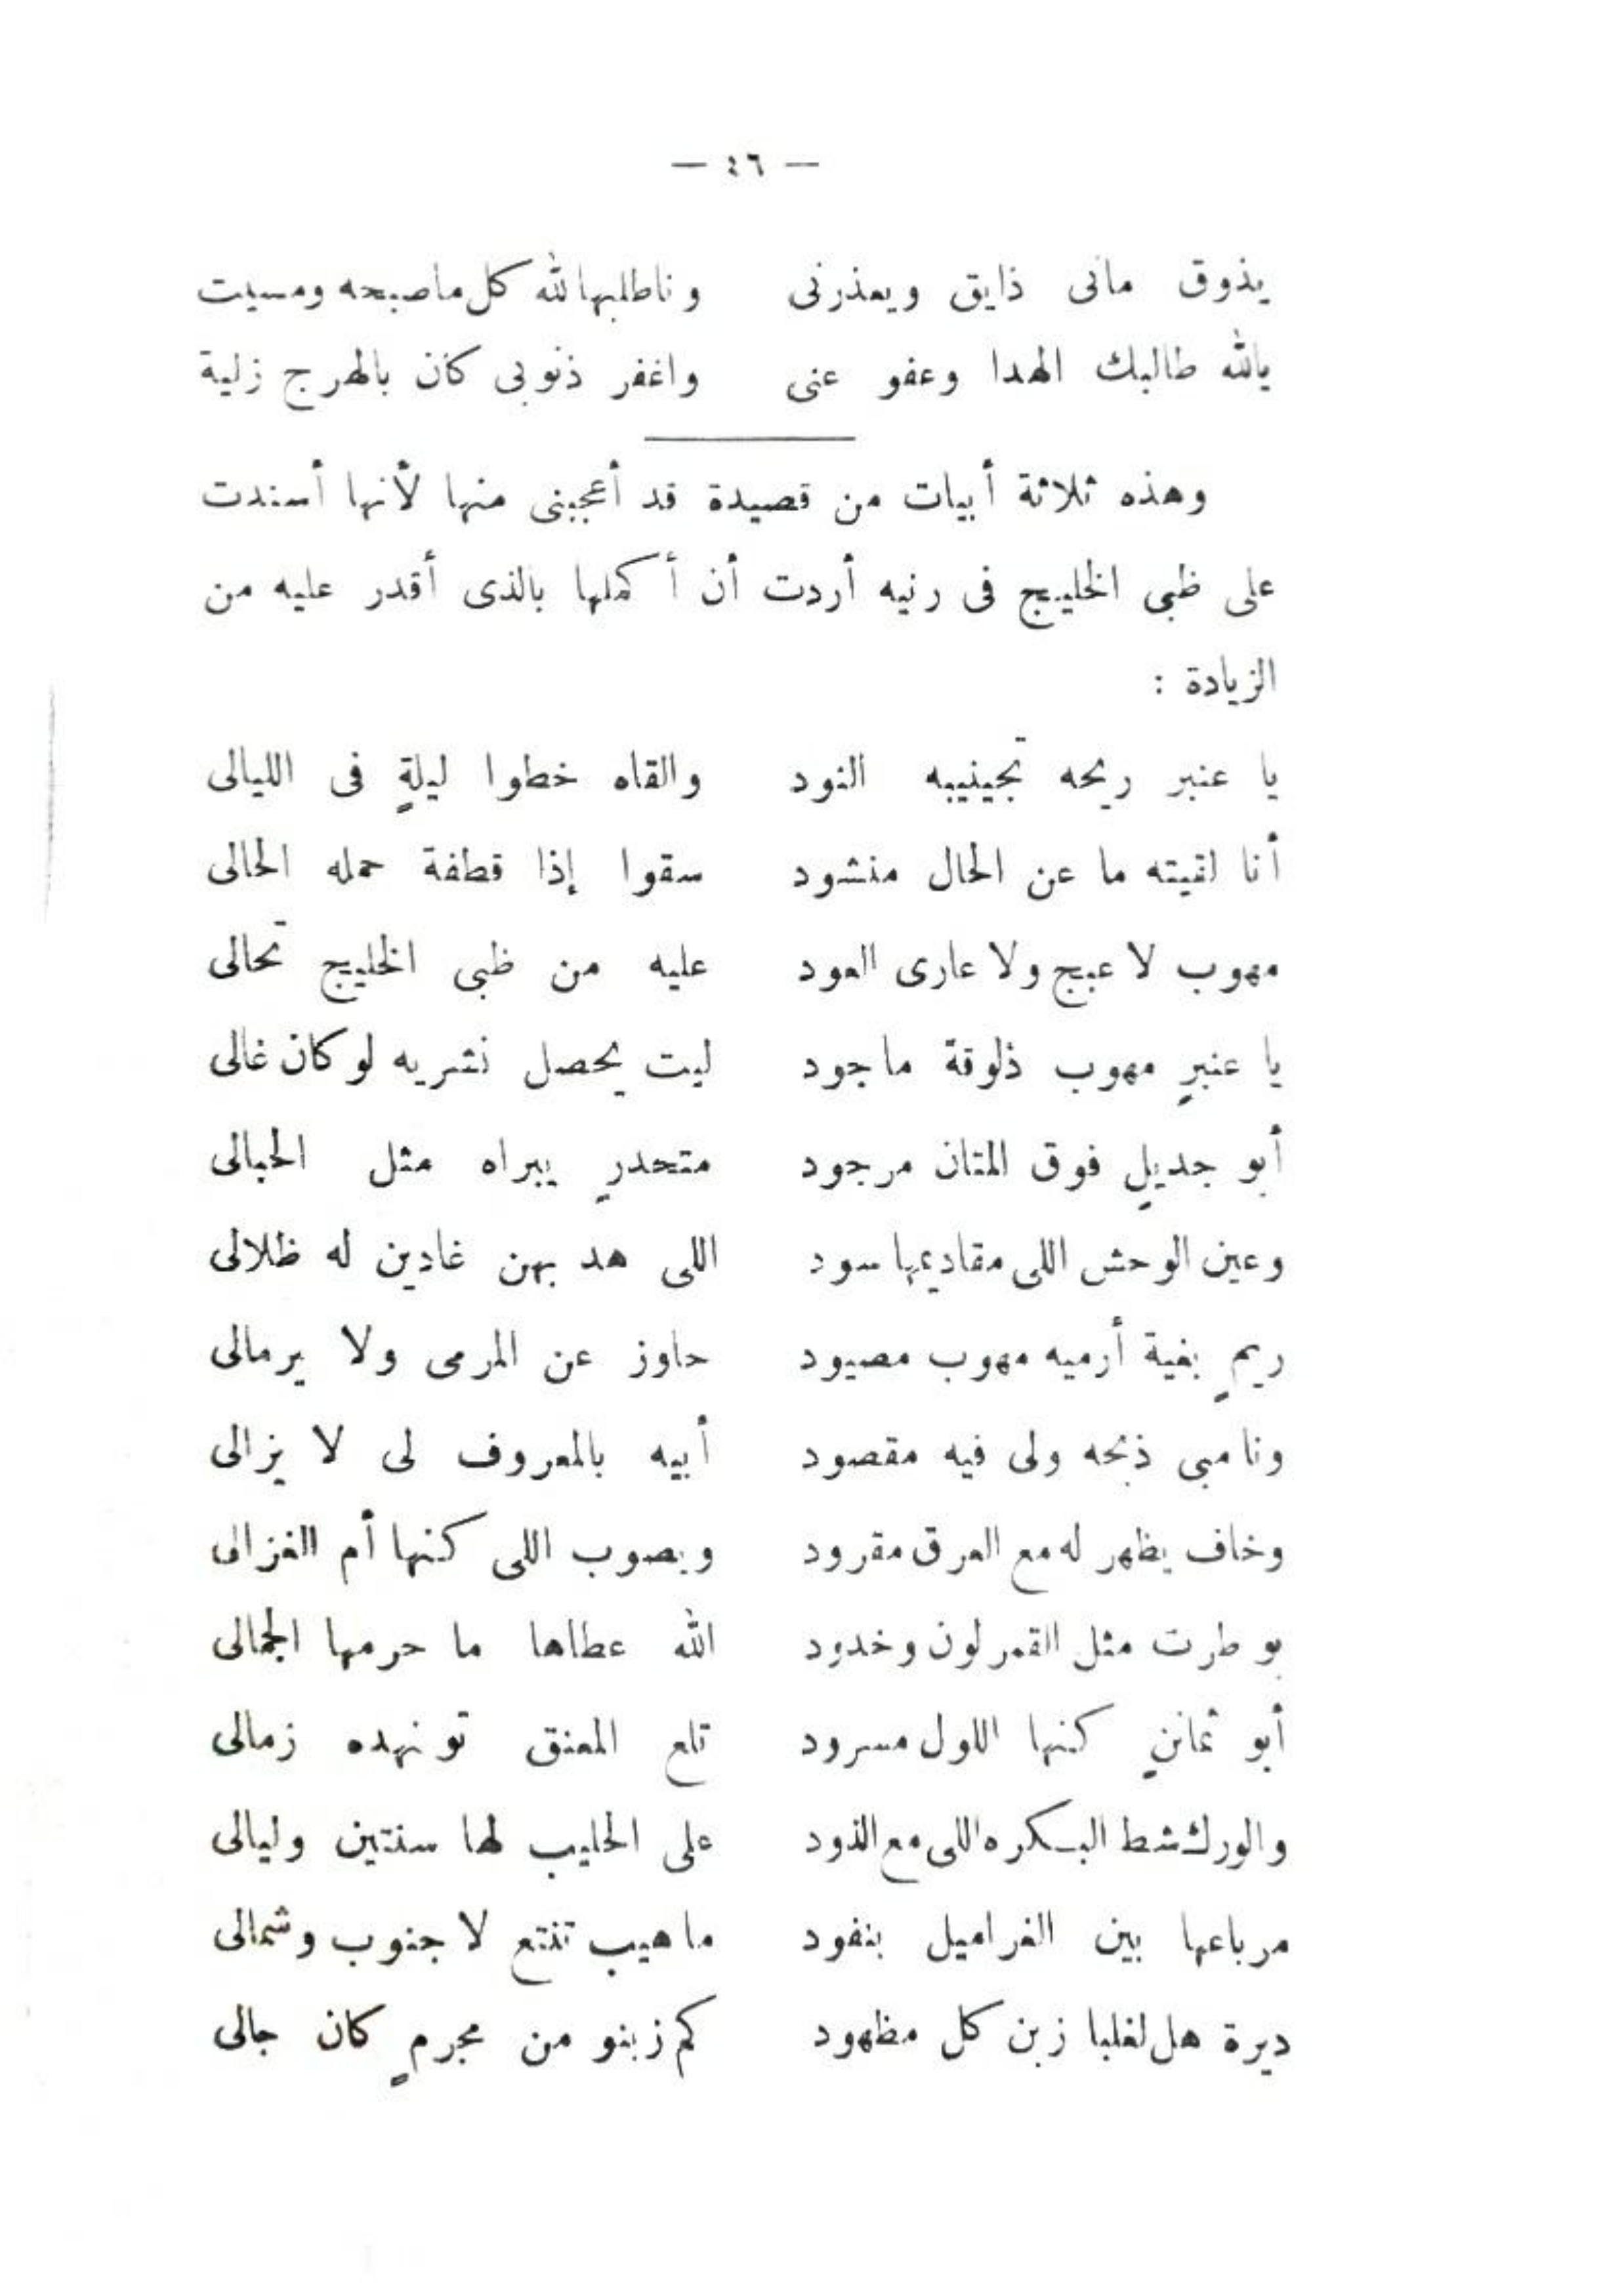 — ٤٦ —
يذوق مانى ذايق ويعذرنى وناطلبها لله كل ماصبحه ومسيت
يالله طالبك الهدا وعفو عنى واغفر ذنوبى كان بالهرج زلية
وهذه ثلاثة أبيات من قصيدة قد أعجبنى منها لأنها أسندت
على ظبى الخليج فى رنيه أردت أن أكملها بالذى أقدر عليه من
الزيادة :
يا عنبر ريحه تجينيبه النود والقاه خطوا ليلةٍ فى الليالى
أنا لقيته ما عن الحال منشود سقوا إذا قطفة حمله الحالى
مهوب لا عبج ولا عارى العود عليه من ظبى الخليج تحالى
يا عنبرٍ مهوب ذلوقة ماجود ليت يحصل نشريه لو كان غالى
أبو جديلٍ فوق المتان مرجود متحدرٍ يبراه مثل الحبالى
وعين الوحش اللى مقاديمها سود اللى هد بهن غادين له ظلالى
ريمٍ بغية أرميه مهوب مصيود حاوز عن المرمى ولا يرمالى
ونا مبى ذبحه ولى فيه مقصود أبيه بالمعروف لى لا يزالى
وخاف يظهر له مع العرق مقرود ويصوب اللى كنها أم الغزالى
بو طرت مثل القمر لون وخدود الله عطاها ما حرمها الجمالى
أبو ثمانٍ كنها اللول مسرود تلع المعنق تو نهده زمالى
والورك شط البكره اللى مع الذود على الحليب لها سنتين وليالى
مرباعها بين الغراميل بنفود ماهيب تنتع لا جنوب وشمالى
ديرة هل لغلبا زبن كل مظهود كم زبنو من مجرمٍ كان جالى